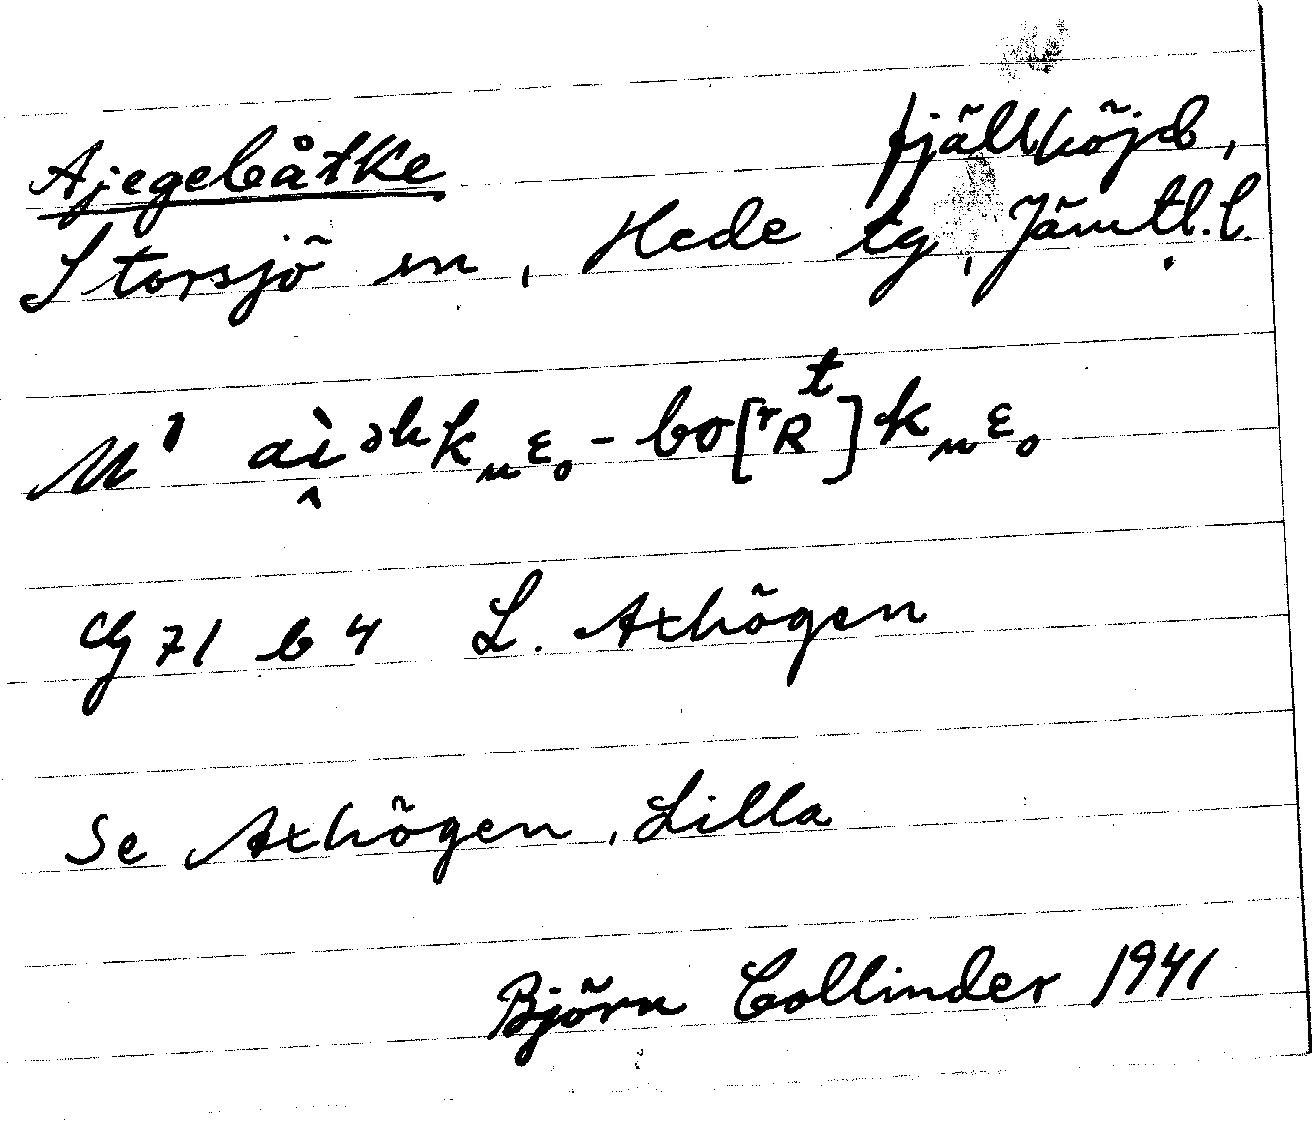 Ajegebåtke fjällhöjd,
Storsjö sn, Hede tg, Jämtl.l.
M¹ aì̭ ᵊʰkₘε₀ - bo[ʳRᵗ]kₘε₀
Cg 71 b 4 L. Axhögen
Se Axhögen, Lilla
Björn Collinder 1941